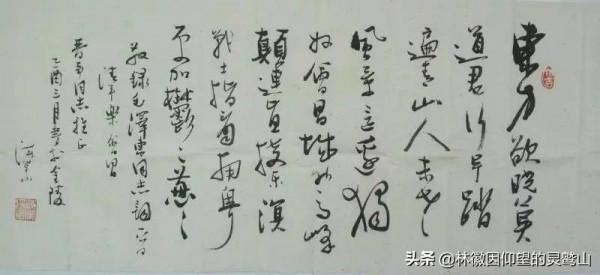 東方欲晓莫
道君行早踏
遍青山人未老
風景這邊獨
好會昌城外高峰
顛連直接东溟
战士指看南粤
更加鬱々葱々
敬録毛澤東同志詞一首
清平樂會昌
同志指正
乙酉三月書於金陵
头条 @林徽因仰望的灵鹫山